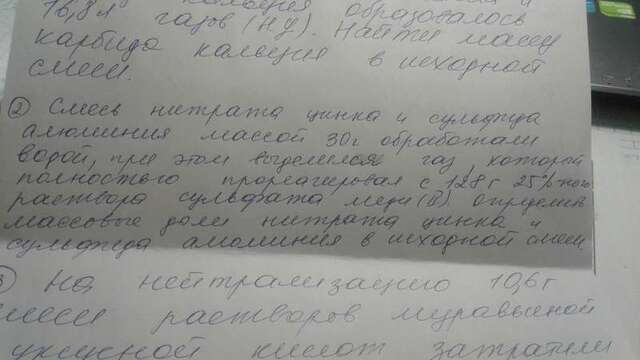 16,8л кальция образовалось
газов (н.у). Найти массу
карбида кальция в исходной
смеси.
② Смесь нитрата цинка и сульфида
алюминия массой 30г обработали
водой, при этом выделился газ, который
полностью прореагировал с 128г 25%ного
раствора сульфата меди(II). Определить
массовые доли нитрата цинка и
сульфида алюминия в исходной смеси
На нейтрализацию 10,6г
смеси растворов муравьиной
уксусной кислот затратили